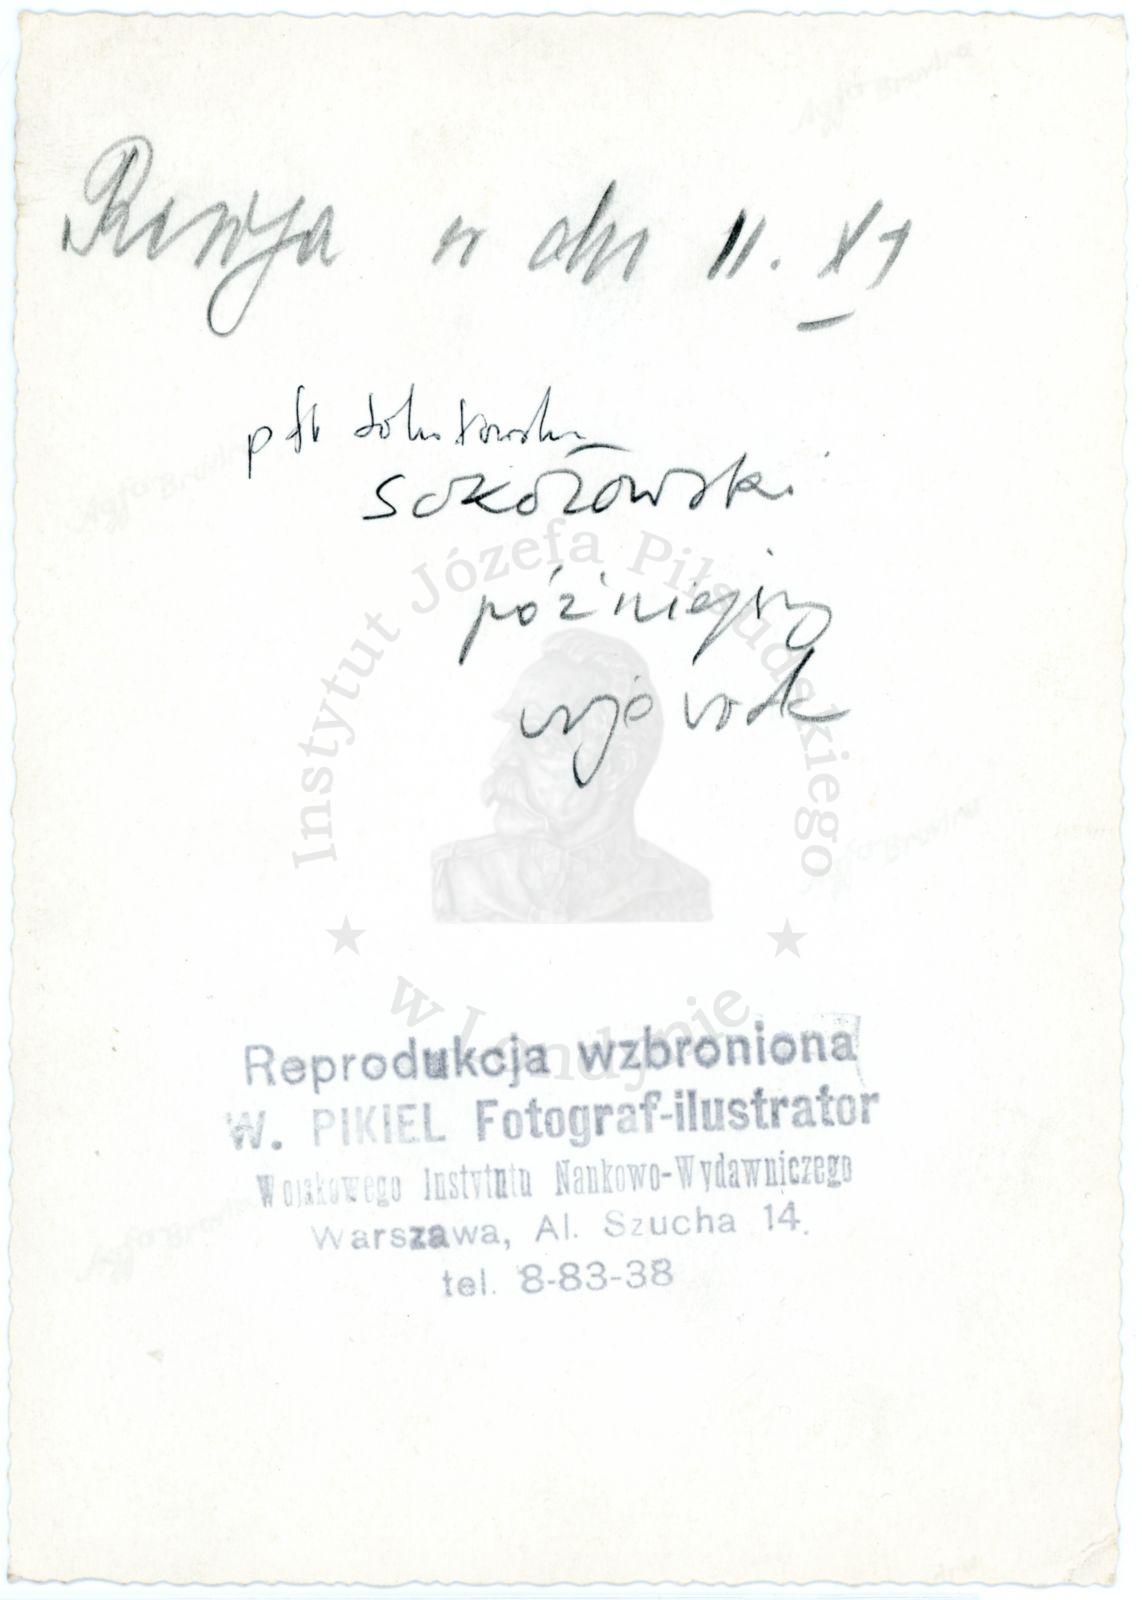 Rewja w dn 11. XI
płk Sokołowski
SOKOŁOWSKI
późniejszy
wojewoda
Instytut Józefa Piłsudskiego
w Londynie
Reprodukcja wzbroniona
W. PIKIEL Fotograf-ilustrator
Wojskowego Instytutu Naukowo-Wydawniczego
Warszawa, Al. Szucha 14.
tel. 8-83-38
Agfa Brovira
Agfa Brovira
Agfa Brovira
Agfa Brovira